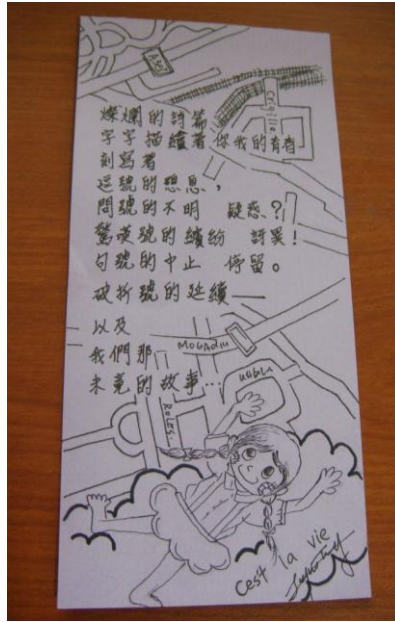 燦爛的詩篇
字字描繪著你我的青春
刻寫著
逗號的想息，
問號的不明 疑惑？
驚嘆號的繽紛 訝異！
句號的中止 停留。
破折號的延續——
以及
我們那
未竟的故事…
Roles.
c'est la vie